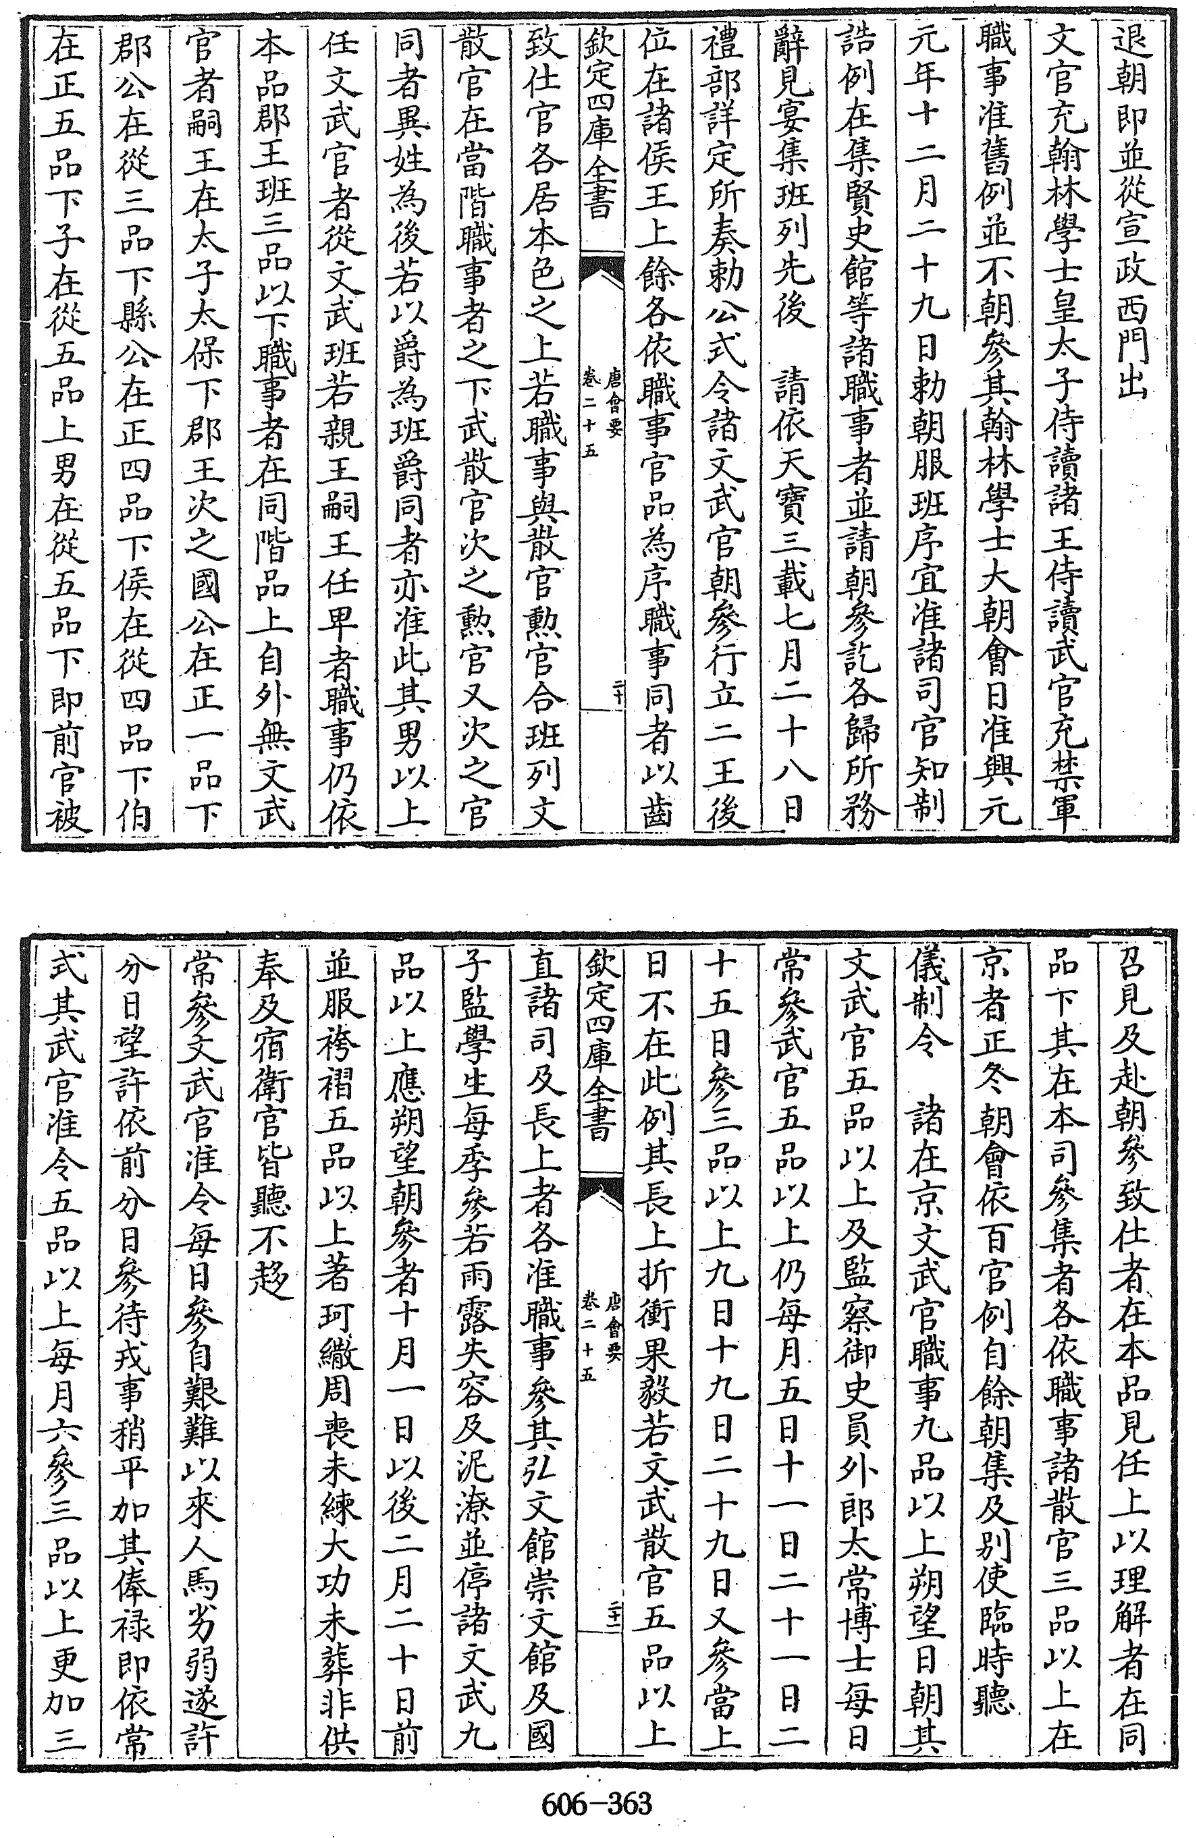 退朝即並從宣政西門出
文官充翰林學士皇太子侍讀諸王侍讀武官充禁軍
職事准舊例並不朝參其翰林學士大朝會日准興元
元年十二月二十九日勅朝服班序宜准諸司官知制
誥例在集賢史館等諸職事者並請朝參訖各歸所務
辭見宴集班列先後　請依天寶三載七月二十八日
禮部詳定所奏勅公式令諸文武官朝參行立二王後
位在諸侯王上餘各依職事官品為序職事同者以齒
欽定四庫全書
唐會要
卷二十五
二十
致仕官各居本色之上若職事與散官勲官合班列文
散官在當階職事者之下武散官次之勲官又次之官
同者異姓為後若以爵為班爵同者亦准此其男以上
任文武官者從文武班若親王嗣王任卑者職事仍依
本品郡王班三品以下職事者在同階品上自外無文武
官者嗣王在太子太保下郡王次之國公在正一品下
郡公在從三品下縣公在正四品下侯在從四品下伯
在正五品下子在從五品上男在從五品下即前官被
召見及赴朝參致仕者在本品見任上以理解者在同
品下其在本司參集者各依職事諸散官三品以上在
京者正冬朝會依百官例自餘朝集及別使臨時聽
儀制令　諸在京文武官職事九品以上朔望日朝其
文武官五品以上及監察御史員外郎太常博士每日
常參武官五品以上仍每月五日十一日二十一日二
十五日參三品以上九日十九日二十九日又參當上
日不在此例其長上折衝果毅若文武散官五品以上
欽定四庫全書
唐會要
卷二十五
二十一
直諸司及長上者各准職事參其弘文館崇文館及國
子監學生每季參若雨露失容及泥潦並停諸文武九
品以上應朔望朝參者十月一日以後二月二十日前
並服袴褶五品以上著珂繖周喪未練大功未葬非供
奉及宿衛官皆聽不趍
常參文武官准令每日參自艱難以來人馬劣弱遂許
分日望許依前分日參待戎事稍平加其俸禄即依常
式其武官准令五品以上每月六參三品以上更加三
606-363